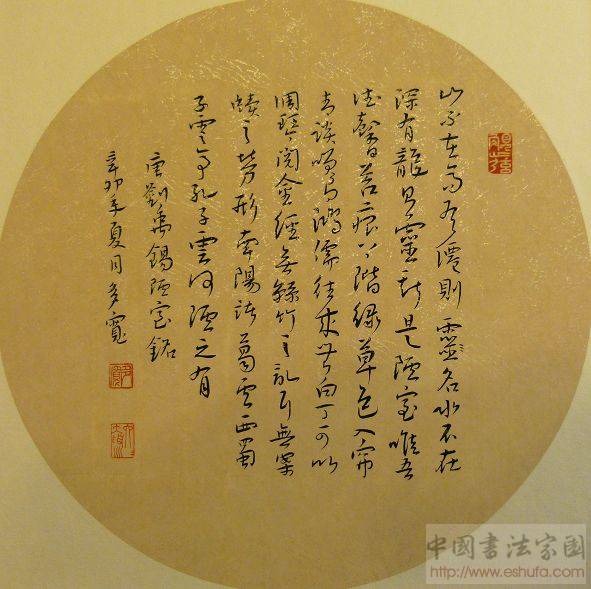 山不在高有僊則靈名水不在
深有龍則靈斯是陋室唯吾
德馨苔痕上階綠草色入帘
青談笑有鴻儒往來無白丁可以
調琴閱金經無絲竹之亂耳無案
牘之勞形南陽諸葛西蜀
子雲亭孔子雲何陋之有
唐劉禹錫陋室銘
辛卯年夏月多寬
中國書法家園
http://www.eshufa.com/